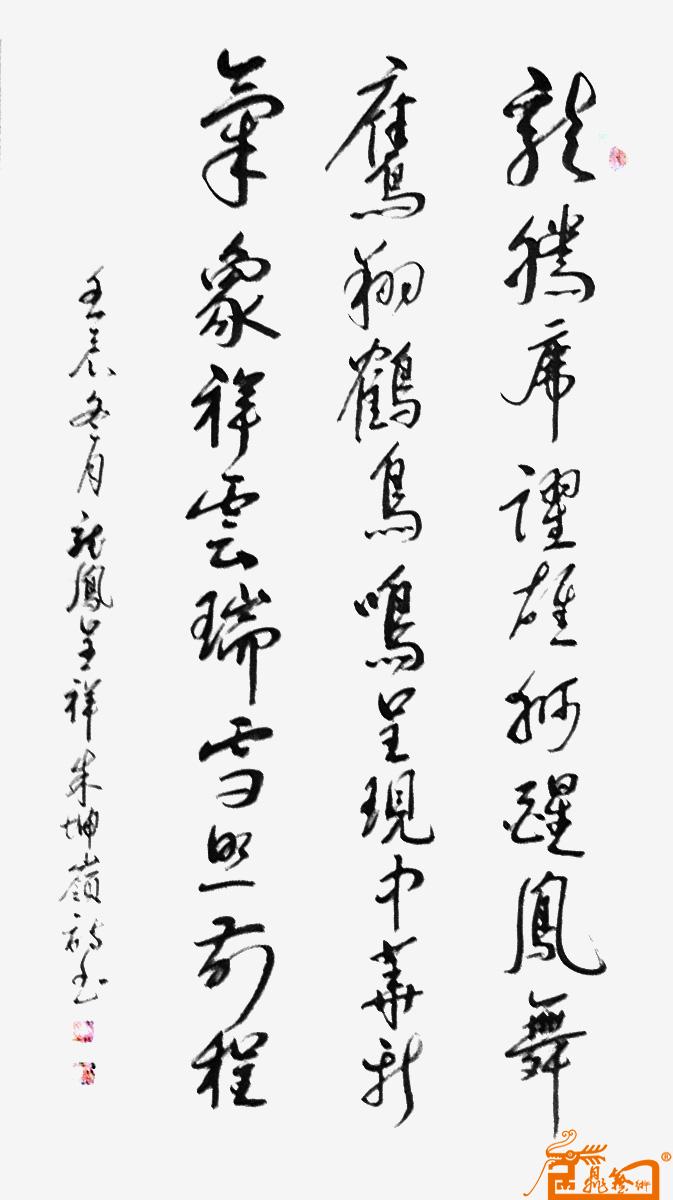 龍騰虎躍雄狮醒鳳舞
鷹翔鶴鳥鳴呈現中華新
氣象祥雲瑞雪照前程
壬辰冬月龍鳳呈祥朱坤嶺书